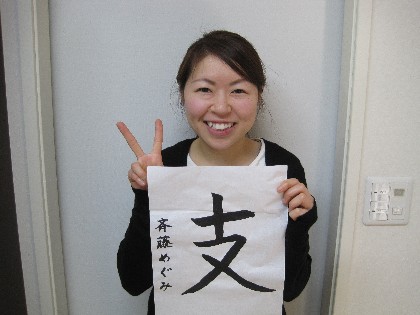 支
斉藤めぐみ